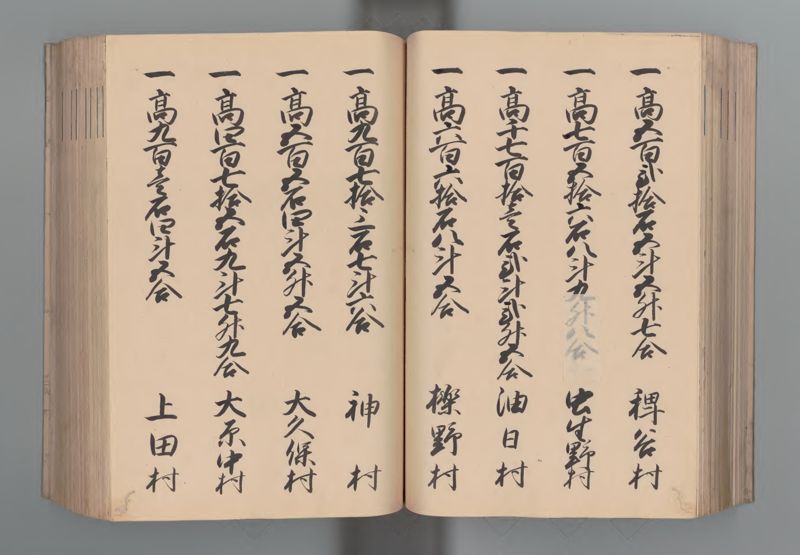 一高五百弐拾石五斗五升七合 稗谷村
一高七百五拾六石八斗九升八合 虫生野村
一高千七百拾壱石弐斗弐升五合 油日村
一高六百六拾石八斗五合 櫟野村
一高九百七拾三石七斗六合 神村
一高五百五石四斗五升五合 大久保村
一高四百七拾五石九斗七升九合 大原中村
一高九百壱石四斗五合 上田村